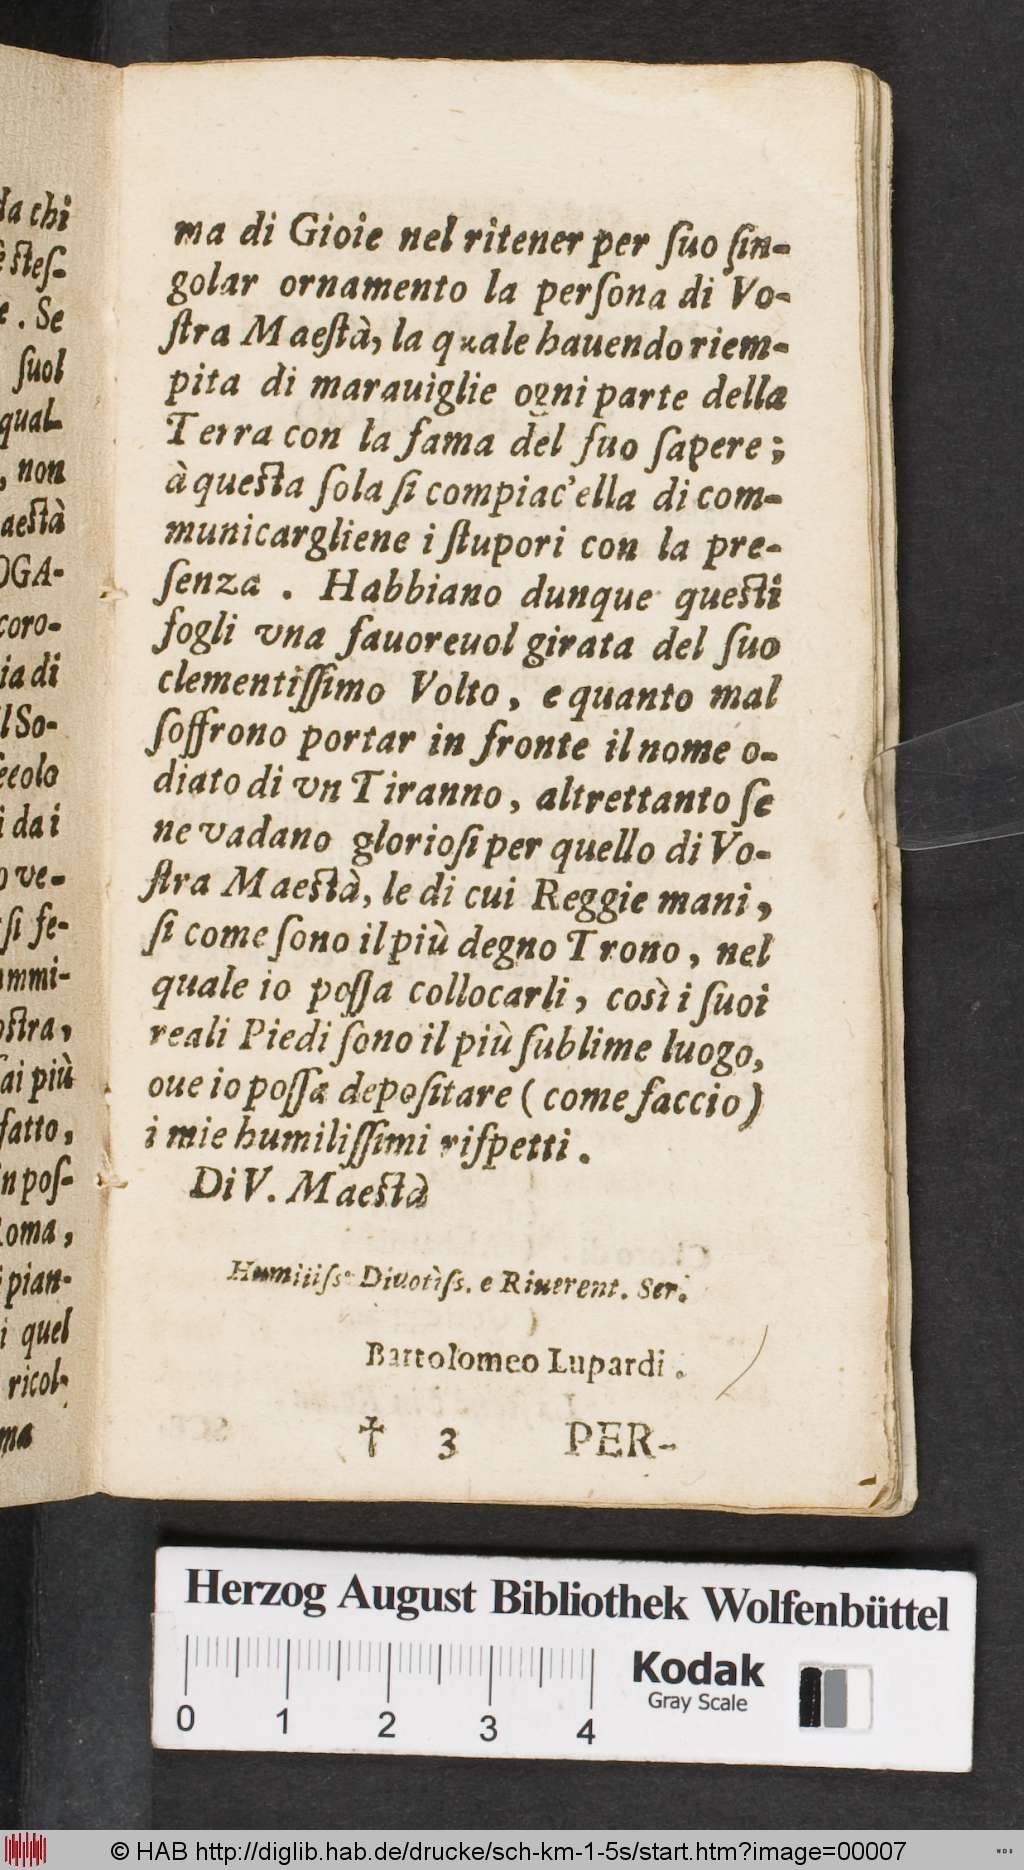 da chi
è stes-
e. Se
suol
qual-
, non
aestà
OGA-
coro-
ia di
il So-
ecolo
i da i
o ve-
si fe-
ammi-
ostra,
sai più
fatto,
n pos-
Roma,
pian-
i quel
ricol-
ma
ma di Gioie nel ritener per ſuo ſin-
golar ornamento la perſona di Vo-
ſtra Maeſtà, la quale hauendo riem-
pita di marauiglie ogni parte della
Terra con la fama del ſuo ſapere;
à questa ſola ſi compiac'ella di com-
municargliene i ſtupori con la pre-
ſenza. Habbiano dunque questi
fogli vna fauoreuol girata del ſuo
clementiſſimo Volto, e quanto mal
ſoffrono portar in fronte il nome o-
diato di vn Tiranno, altrettanto ſe
ne vadano glorioſi per quello di Vo-
ſtra Maestà, le di cui Reggie mani,
ſi come ſono il più degno Trono, nel
quale io poſſa collocarli, così i ſuoi
reali Piedi ſono il più ſublime luogo,
oue io poſſa depoſitare (come faccio)
i mie humiliſſimi riſpetti.
Di V. Maestà
Humiliſs. Diuotiſs. e Riuerent. Ser.
Bartolomeo Lupardi.
† 3 PER-
Herzog August Bibliothek Wolfenbüttel
0 1 2 3 4
Kodak
Gray Scale
© HAB http://diglib.hab.de/drucke/sch-km-1-5s/start.htm?image=00007